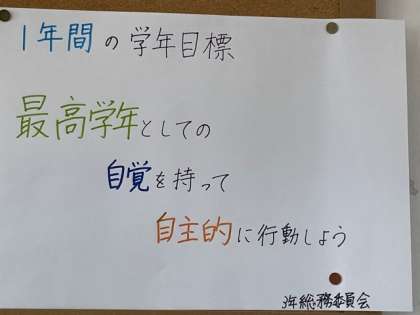 1年間の学年目標
最高学年としての
自覚を持って
自主的に行動しよう
3年総務委員会